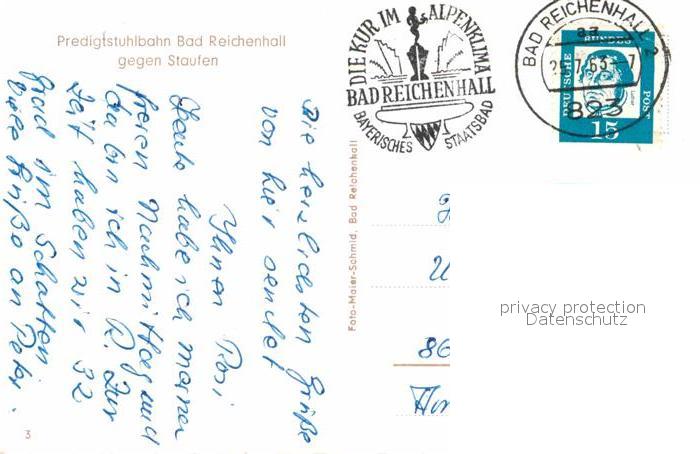 Predigtstuhlbahn Bad Reichenhall
gegen Staufen
Die herzlichsten Grüße
von hier sendet
Ihnen Rosi
Heute habe ich meinen
freien Nachmittag und
da bin ich in R. Zur
Zeit haben wir 32
Grad im Schatten
Viele Grüße an Peter.
3
Foto-Maier-Schmid, Bad Reichenhall
DIE KUR IM ALPENKLIMA
BAD REICHENHALL
BAYERISCHES STAATSBAD
BAD REICHENHALL 2
aa
7.63
-7
823
DEUTSCHE BUNDESPOST
Luther
15
86
privacy protection
Datenschutz